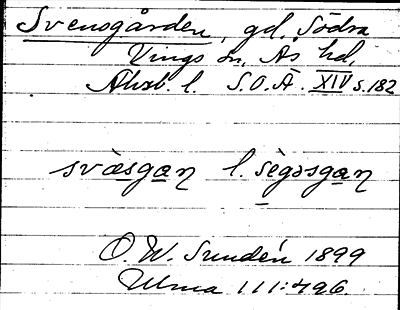 Svensgården, gd. Södra
Vings sn, Ås hd,
Älvsb. l. S.O.Ä. XIV s. 182
svæsgan l. sègəsgan
O. W. Sundén 1899
Ulma 111:496.